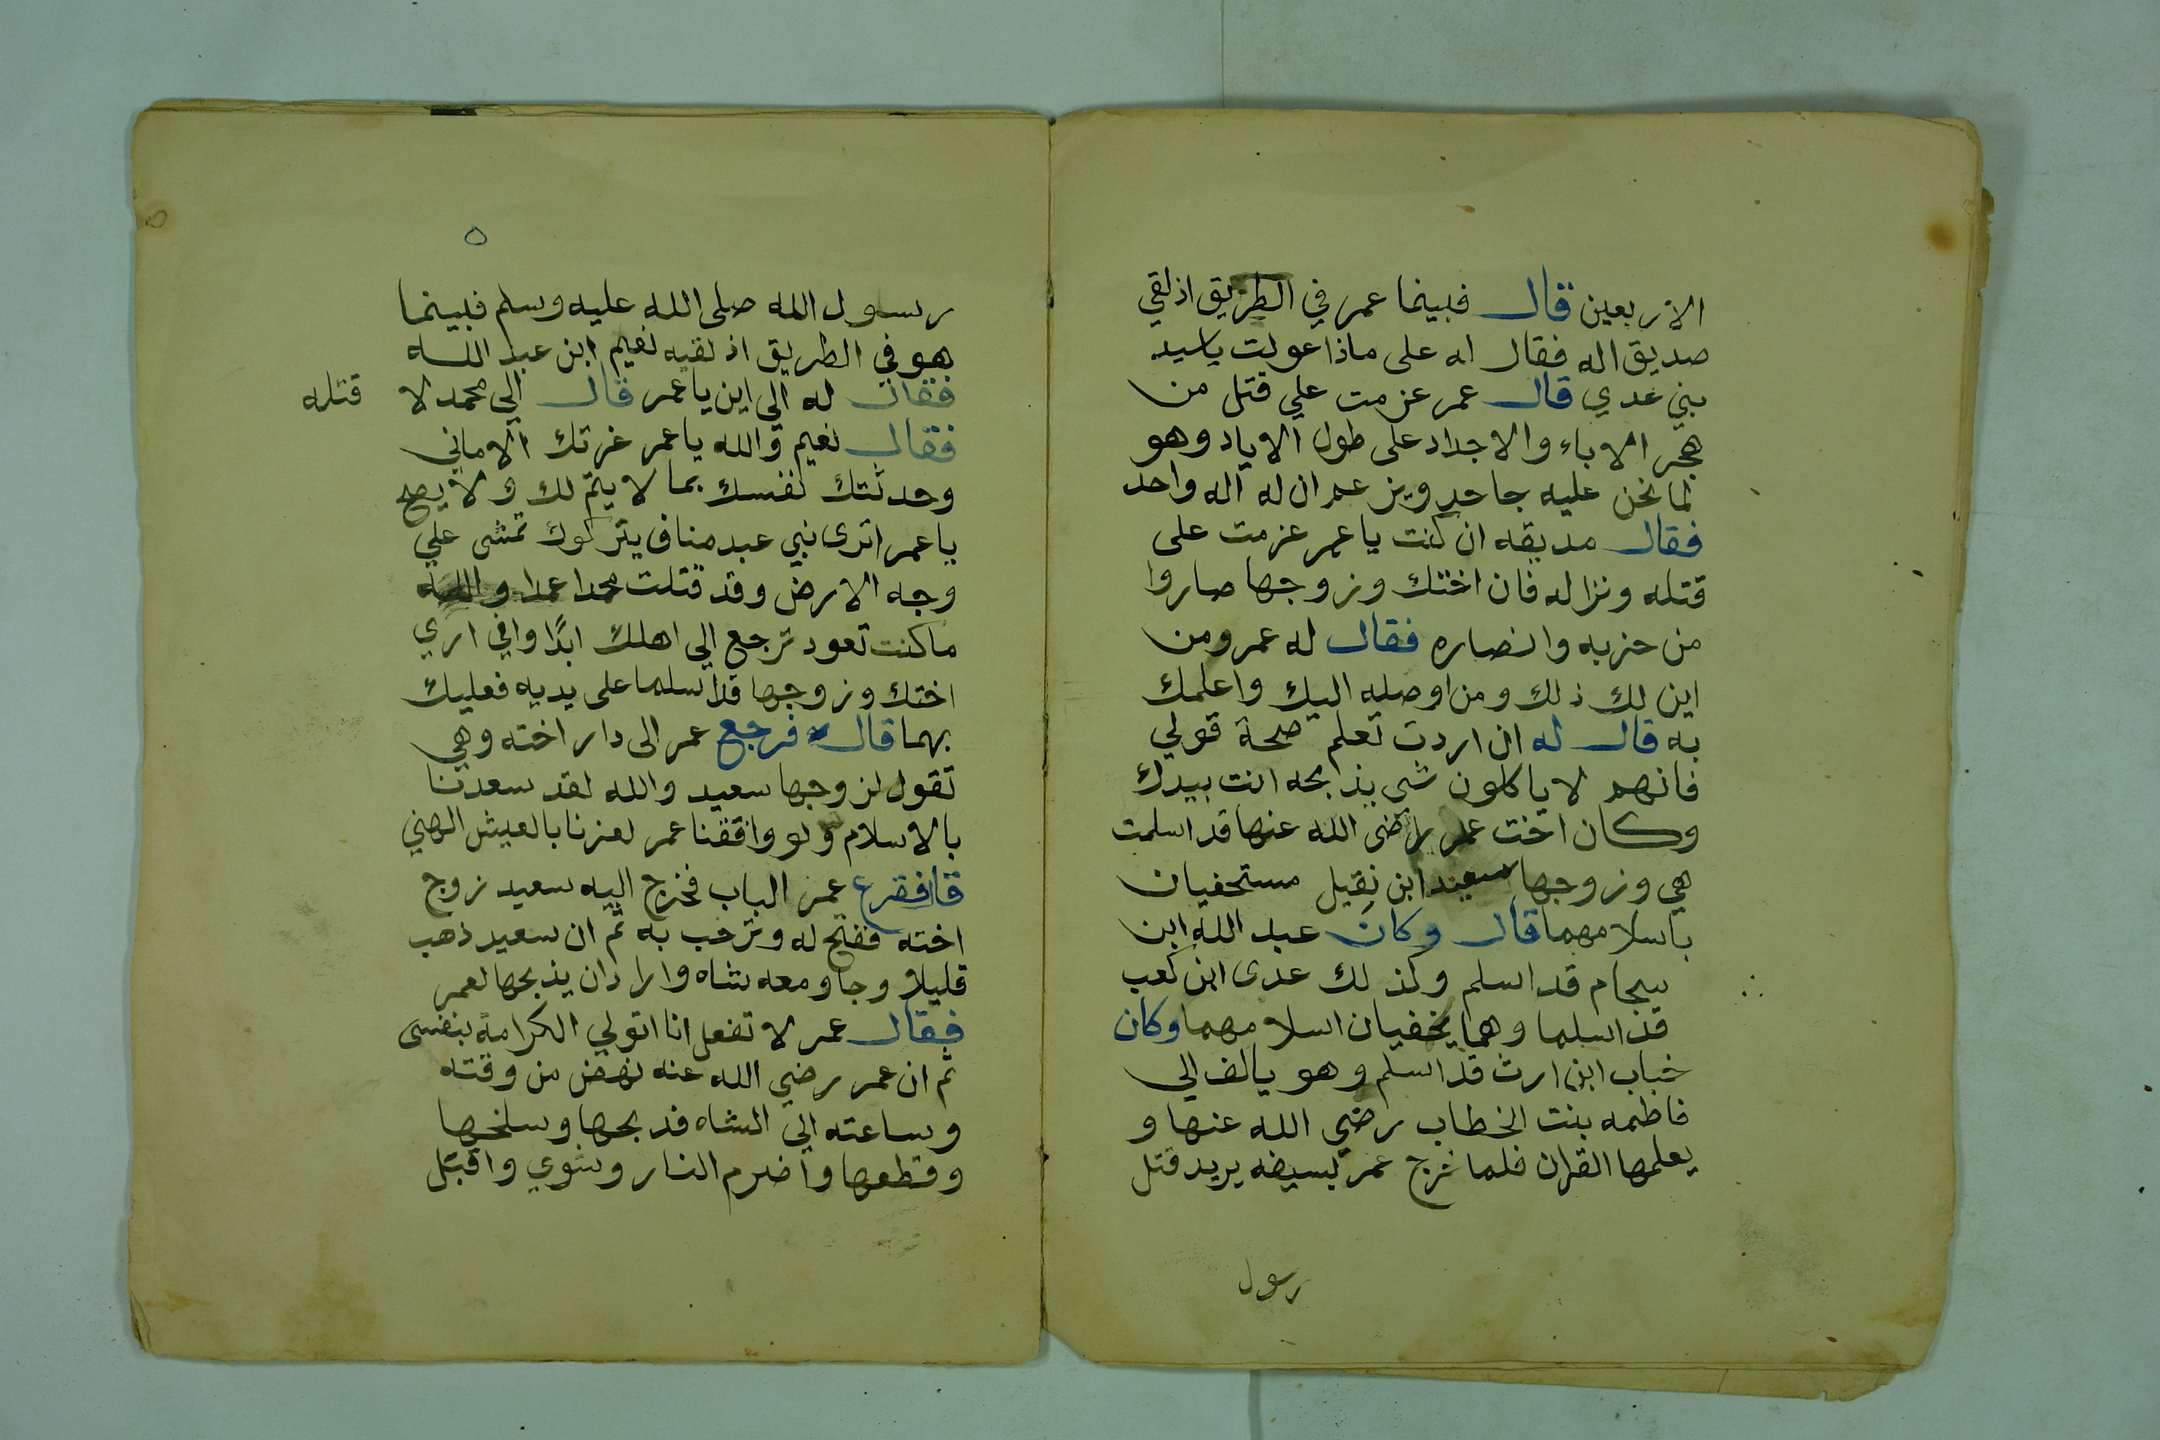 الاربعين قال فبينما عمر في الطريق اذ لقي
صديق اله فقال له على ماذا عولت ياسيد
بني عدي قال عمر عزمت علي قتل من
هجر الاباء والاجداد على طول الاباد وهو
لما نحن عليه جاحد ويزعم ان له اله واحد
فقال صديقه ان كنت يا عمر عزمت على
قتله ونزاله فان اختك وزوجها صاروا
من حزبه وانصاره فقال له عمر ومن
اين لك ذلك ومن اوصله اليك واعلمك
به قال له ان اردت تعلم صحة قولي
فانهم لا ياكلون شي يذابحه انت بيدك
وكان اخت عمر رضى الله عنها قد اسلمت
هي وزوجها سعيد ابن نفيل مستخفيان
باسلامهما قال وكان عبد الله ابن
قد اسلم وكذلك عدى ابن كعب
قد اسلما وهما يخفيان اسلامهما وكان
خباب ابن ارت قد اسلم وهو يالف الي
فاطمه بنت الخطاب رضي الله عنها و
يعلمها القران فلما خرج عمر بسيفه يريد قتل
رسول
٥
رسول الله صلى الله عليه وسلم فبينما
هو في الطريق اذ لقيه نعيم ابن عبد الله
فقال له الى اين يا عمر قال الي محمد لا قتله
فقال نعيم والله يا عمر غرتك الاماني
وحدثتك نفسك بما لا يتم لك ولا يصح
يا عمر اترى بني عبد مناف يتركوك تمشى علي
وجه الارض وقد قتلت محمدا عمدا والله
ما كنت تعود ترجع الي اهلك ابدًا واني اري
اختك وزوجها قد اسلما على يديه فعليك
بهما قال فرجع عمر الى دار اخته وهي
تقول لزوجها سعيد والله لقد سعدنا
بالاسلام ولو وافقنا عمر لعزنا بالعيش الهني
قال فقرع عمر الباب فخرج اليه سعيد زوج
اخته ففتح له وترحب به ثم ان سعيد ذهب
قليلا وجا ومعه شاه وارادان يذبحها لعمر
فقال عمر لا تفعل انا اتولي الكرامة بنفسى
ثم ان عمر رضي الله عنه نهض من وقته
وساعته الي الشاه فدبحها وسلخها
وقطعها واضرم النار وشوي واقبل